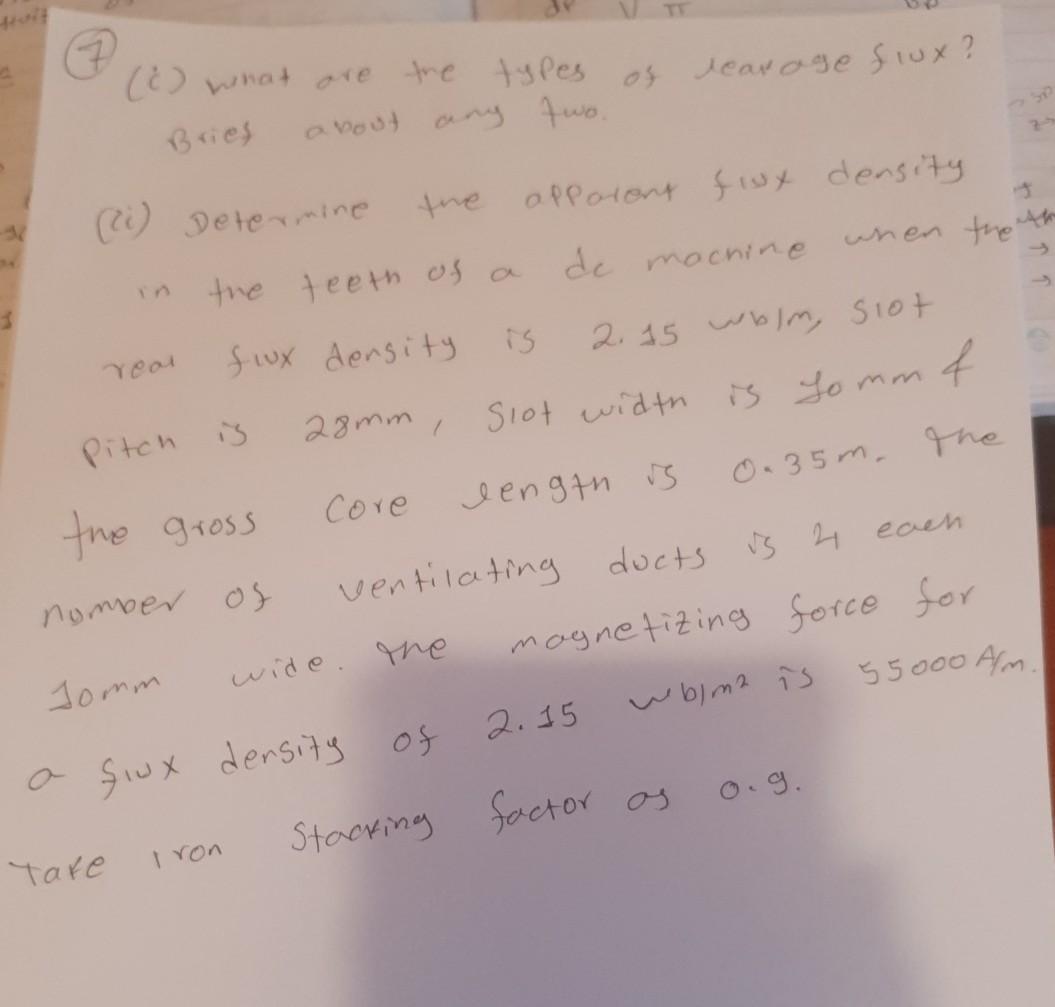 7
(i) what are the types of leakage flux?
Brief about any two.
(ii) Determine the apparent flux density
in the teeth of a dc machine when the
real flux density is 2.15 wb/m, slot
Pitch is 28mm, slot width is 10mm &
the gross core length is 0.35m. The
number of ventilating ducts is 4 each
10mm wide. The magnetizing force for
a flux density of 2.15 wb/m² is 55000 A/m.
Take iron stacking factor as 0.9.